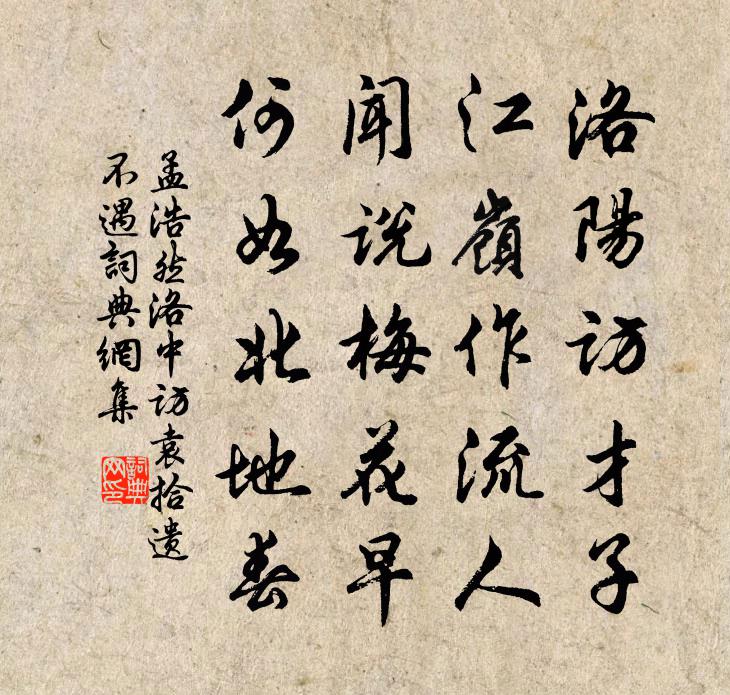 洛陽訪才子
江嶺作流人
聞說梅花早
何如北地春
孟浩然洛中訪袁拾遺
不遇詞典網集
詞典
网印